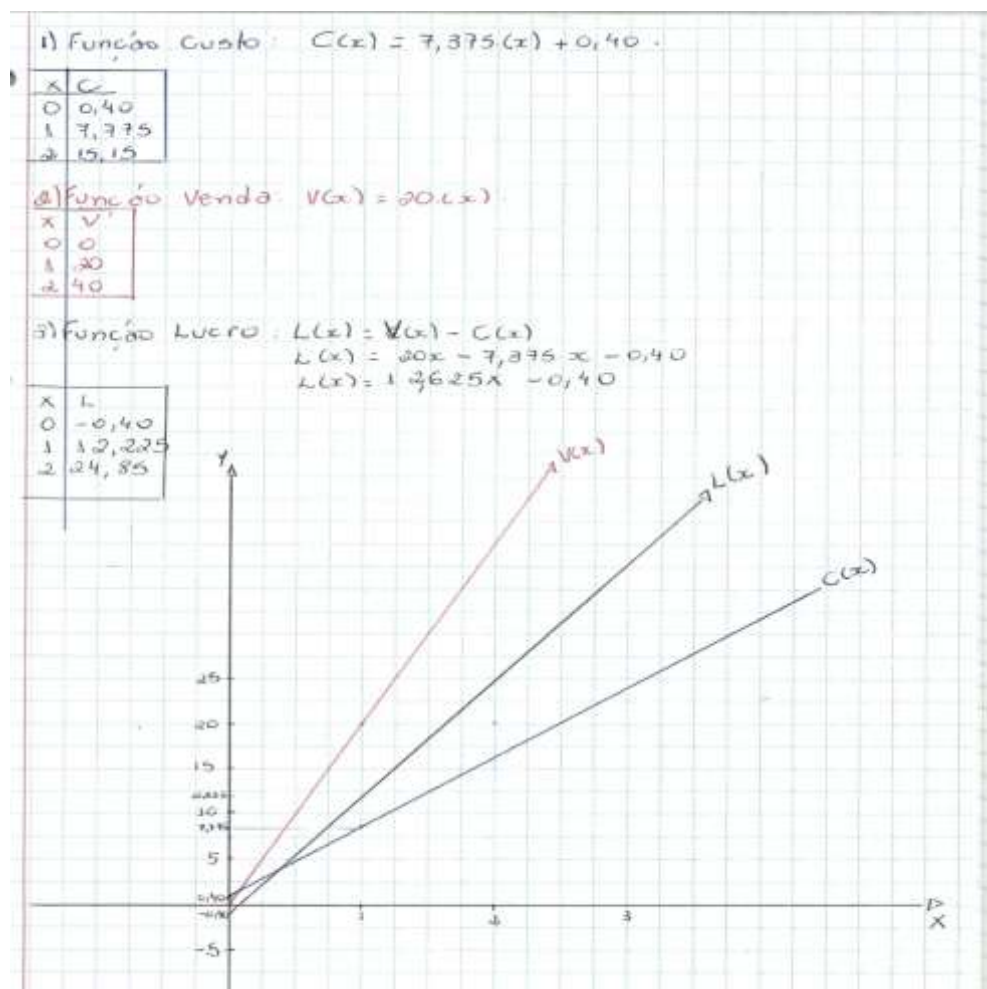 1) Função Custo: C(x) = 7,375.(x) + 0,40.
x C
0 0,40
1 7,775
2 15,15
2) Função Venda: V(x) = 20.(x)
x V
0 0
1 20
2 40
3) Função Lucro: L(x) = V(x) - C(x)
L(x) = 20x - 7,375 x - 0,40
L(x) = 12,625x - 0,40
x L
0 -0,40
1 12,225
2 24,85
Y
V(x)
L(x)
C(x)
25
20
15
10
5
0,40
-0,40
-5
1
2
3
X